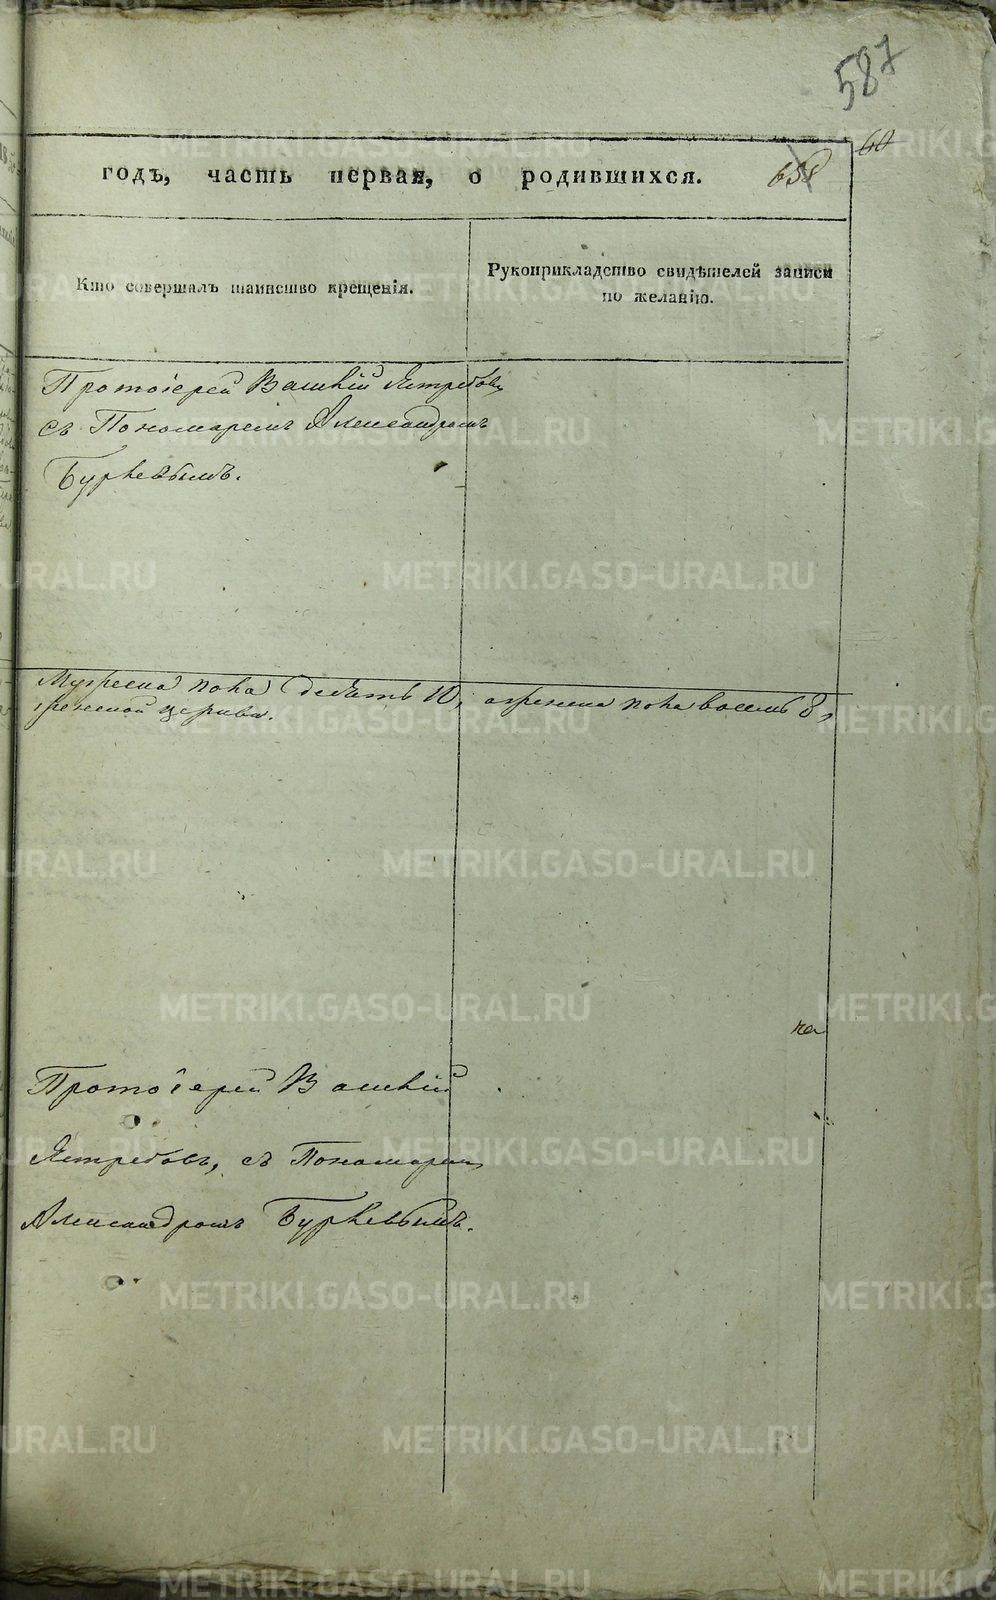 587
60
годъ, часть первая, о родившихся. 658
Кто совершалъ таинство крещенія.
Рукоприкладство свидѣтелей записи
по желанію.
Протоіерей Василій Ястребовъ
съ Пономаремъ Александромъ
Бурневымъ.
пола десять 10, женска пола восемь 8,
церкви.
на
Протоіерей Василій
Ястребовъ, съ Пономаремъ
Александромъ Бурневымъ.
METRIKI.GASO-URAL.RU